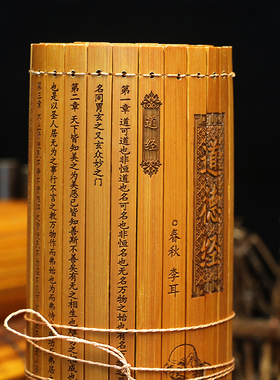 道德经
○春秋 李耳
道经
第一章 道可道也非恒道也名可名也非恒名也无名万物之始也有
名同胃玄之又玄众妙之门
第二章 天下皆知美之为美恶已皆知善斯不善矣有无之相生也
也是以圣人居无为之事行不言之教万物作而弗始也为而弗
第三章